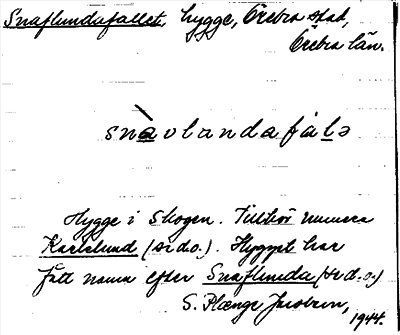 Snaflundafallet, hygge, Örebro stad,
Örebro län.
snàvlandafàlə
Hygge i Skogen. Tillhör numera
Karlslund (se d.o.). Hygget har
fått namn efter Snaflunda (se d.o.)
S. Plænge Jacobson,
1944.